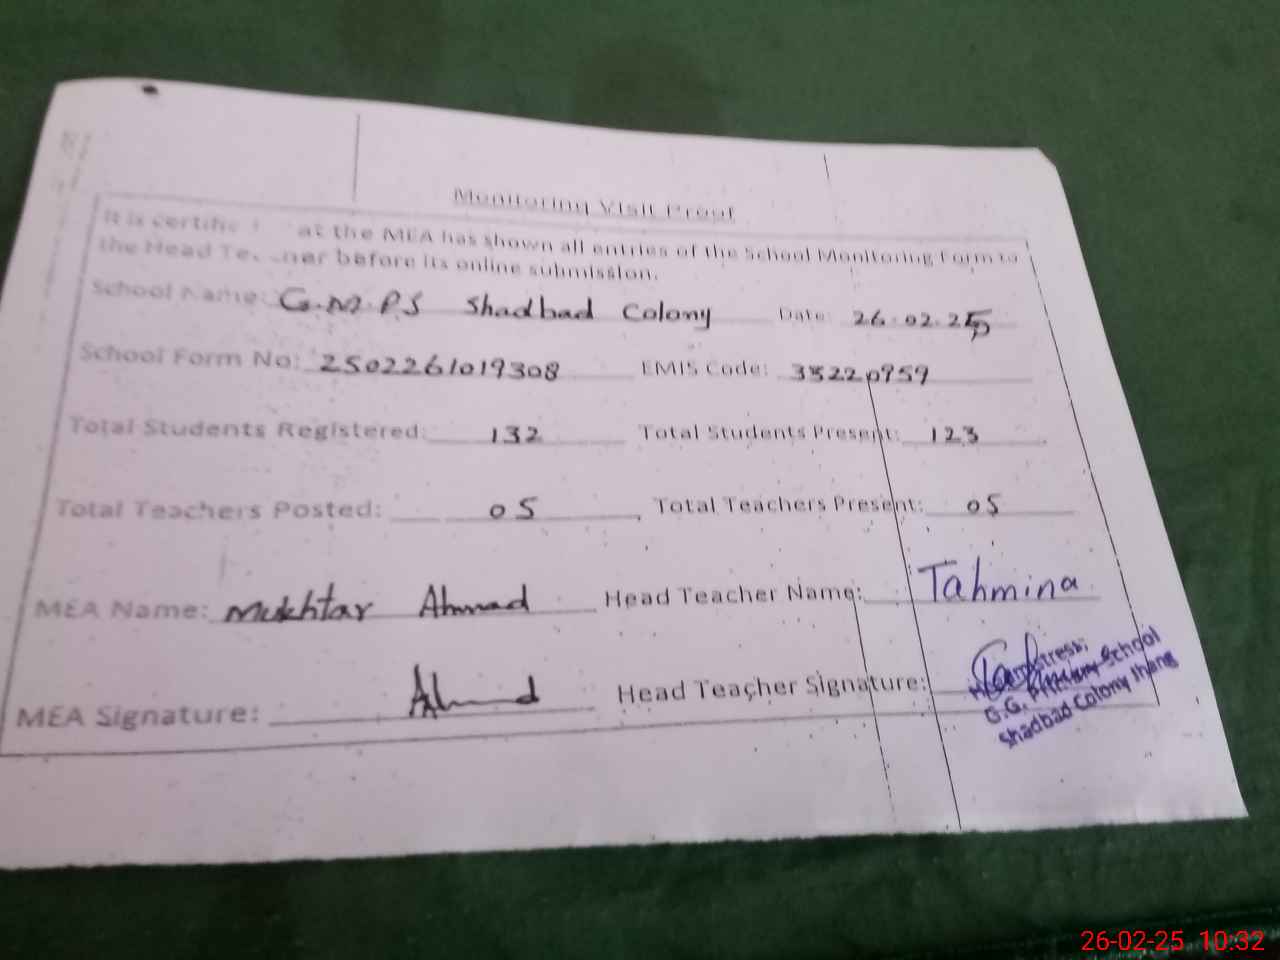 Monitoring Visit Proof
It is certifie at the MEA has shown all entries of the School Monitoring Form to
the Head before its online submission.
School Name: G.M.P.S Shadbad Colony Date: 26.02.25
School Form No: 2502261019308 EMIS Code: 33220959
Total Students Registered: 132 Total Students Present: 123
Total Teachers Posted: 05 Total Teachers Present: 05
MEA Name: Mukhtar Ahmad Head Teacher Name: Tahmina
MEA Signature: Ahmad Head Teacher Signature:
G.G. School
Shadbad Colony Jhang
26-02-25 10:32